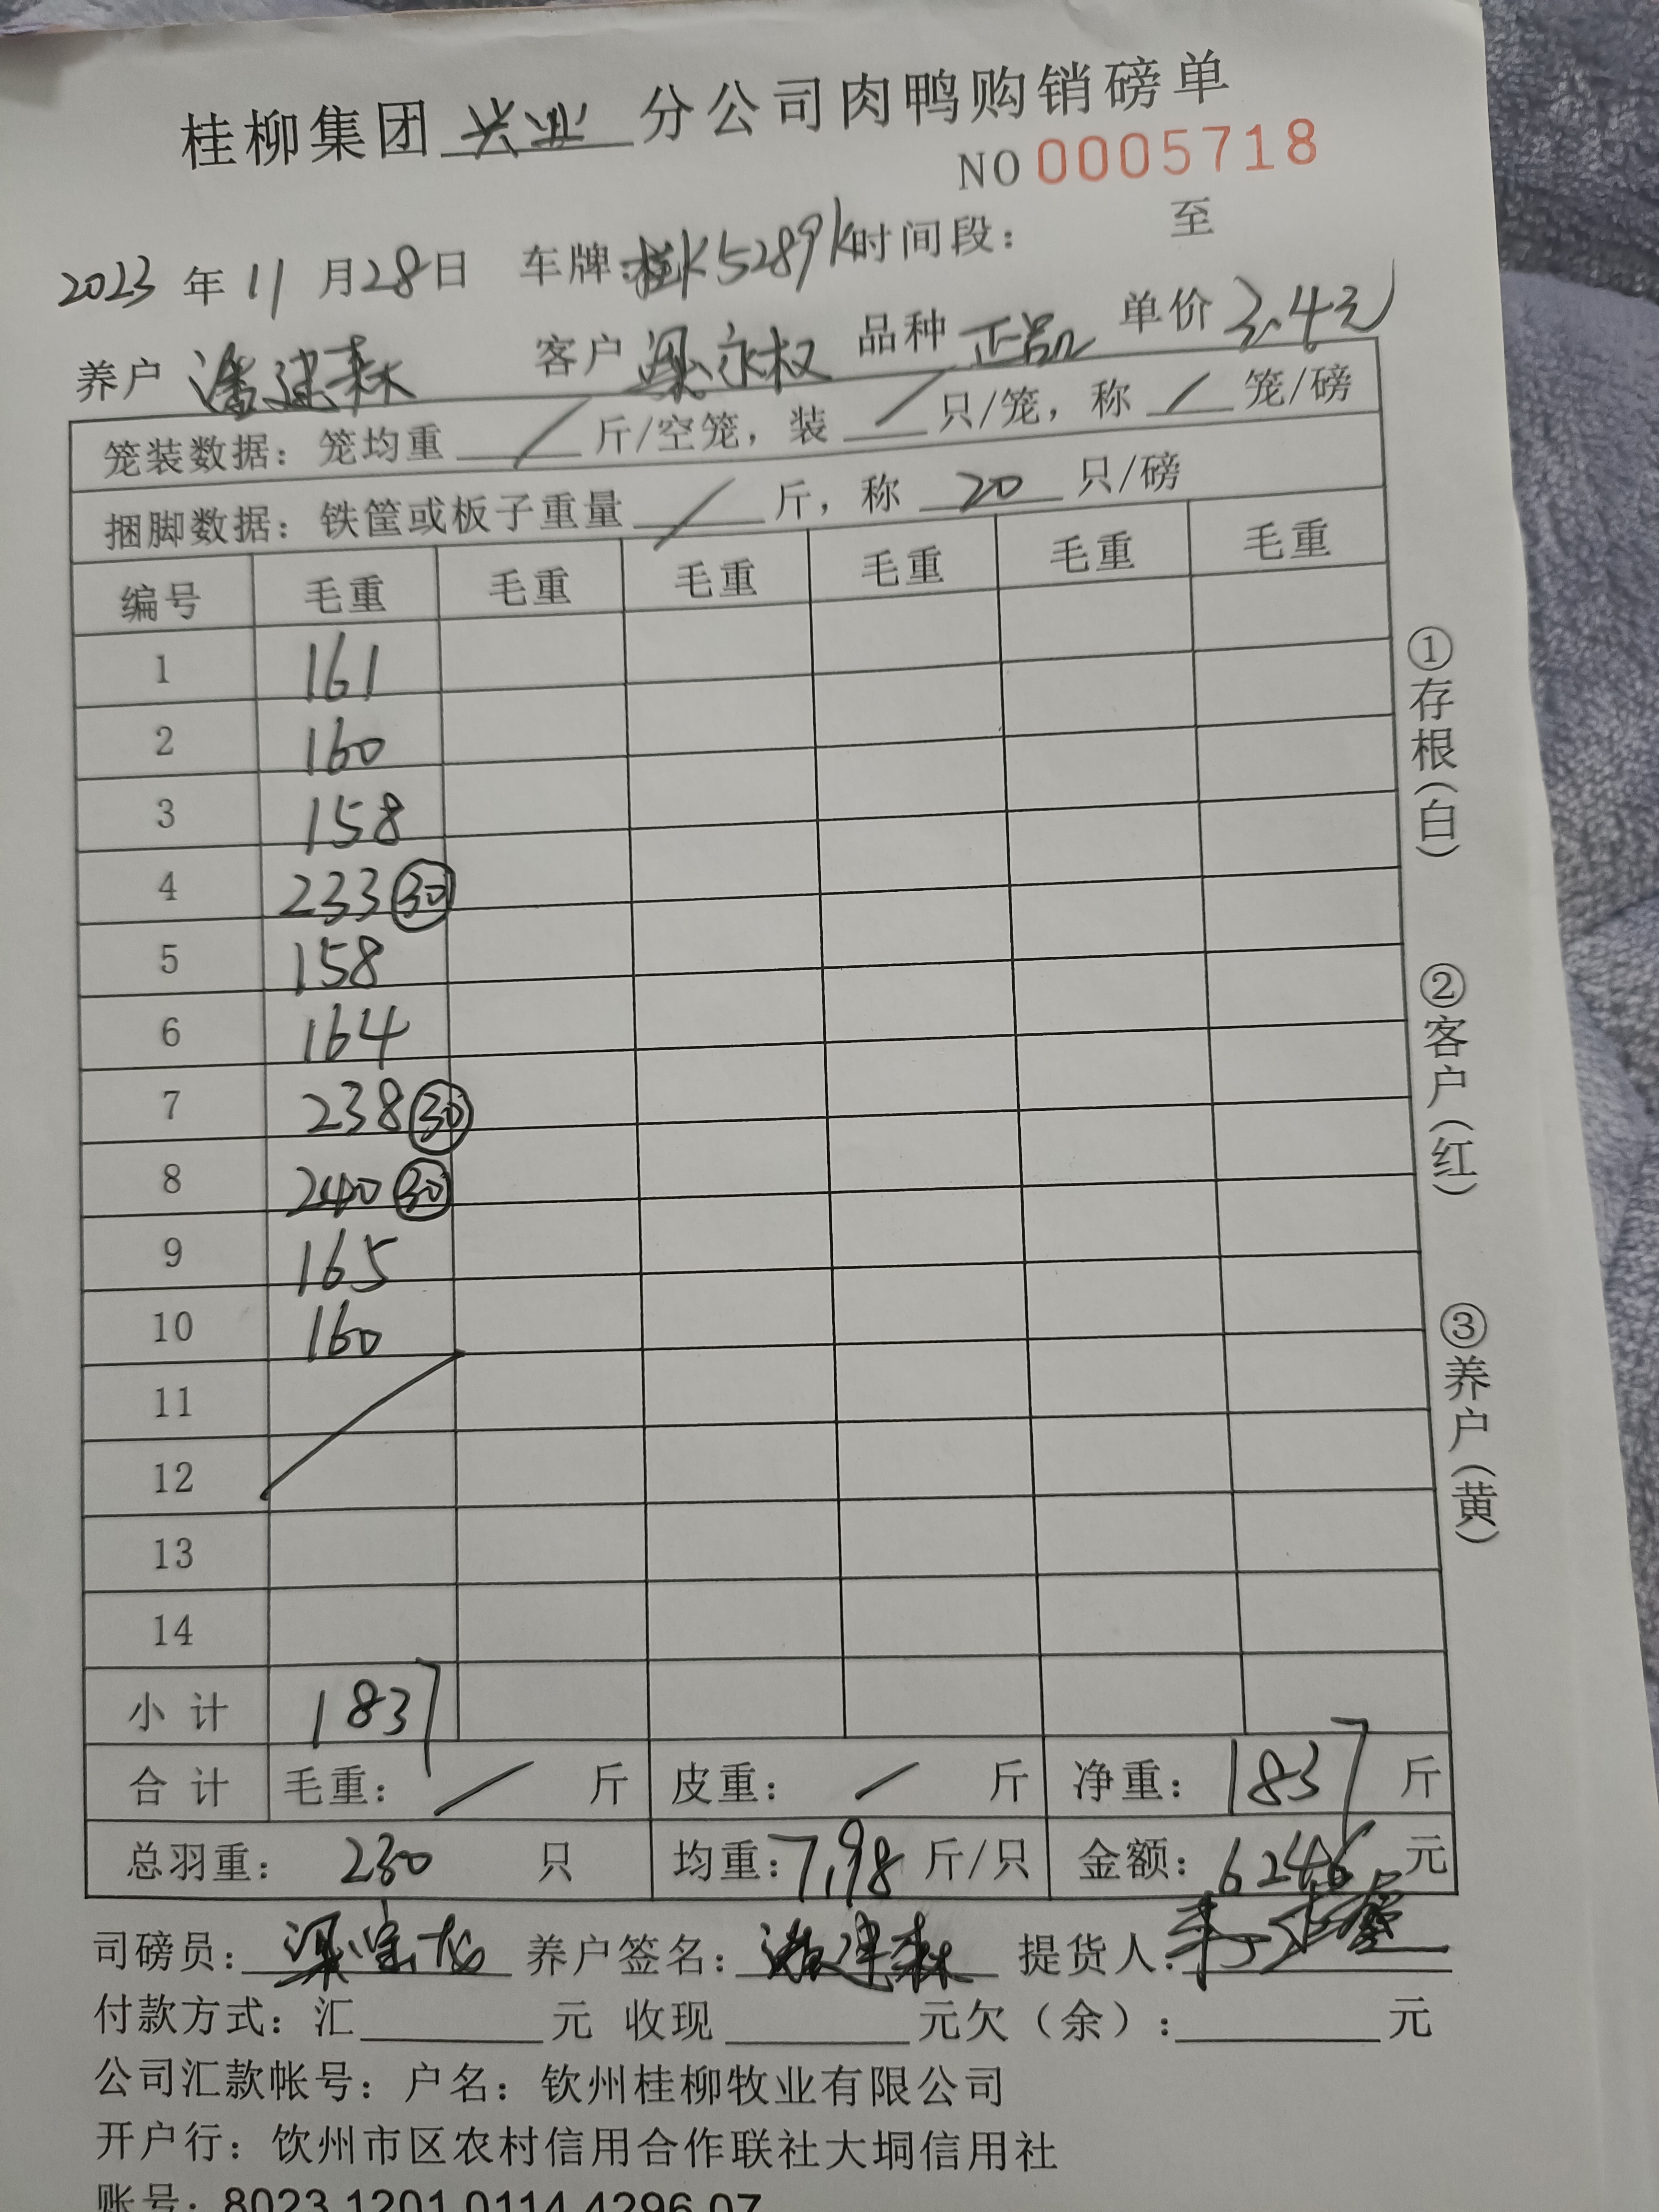 桂柳集团兴业分公司肉鸭购销磅单
NO 0005718
2023年11月28日 车牌:桂K5289K 时间段: 至
养户 潘建森 客户 梁永权 品种 正品 单价 3.4元
笼装数据: 笼均重 / 斤/空笼, 装 / 只/笼, 称 / 笼/磅
捆脚数据: 铁筐或板子重量 / 斤, 称 20 只/磅
编号 毛重 毛重 毛重 毛重 毛重 毛重
1 161
2 160
3 158
4 233 ㉚
5 158
6 164
7 238 ㉚
8 240 ㉚
9 165
10 160
11
12
13
14
小计 1837
合计 毛重: / 斤 皮重: / 斤 净重: 1837 斤
总羽重: 230 只 均重: 7.98 斤/只 金额: 6246 元
司磅员: 养户签名: 潘建森 提货人:
付款方式: 汇 元 收现 元欠(余): 元
公司汇款帐号: 户名: 钦州桂柳牧业有限公司
开户行: 钦州市区农村信用合作联社大垌信用社
账号: 8023 1201 0114 4296 07
①存根(白)
②客户(红)
③养户(黄)